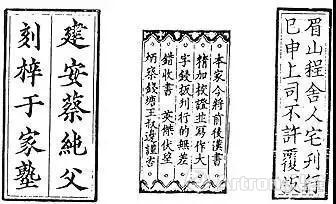 眉山程舍人宅刊行
已申上司不許覆
本家今將前後漢書
精加校證並寫作大
字鋟板刊行的無差
錯收書 英傑伏望
炳察錢塘王叔邊謹咨
建安蔡純父
刻梓于家塾